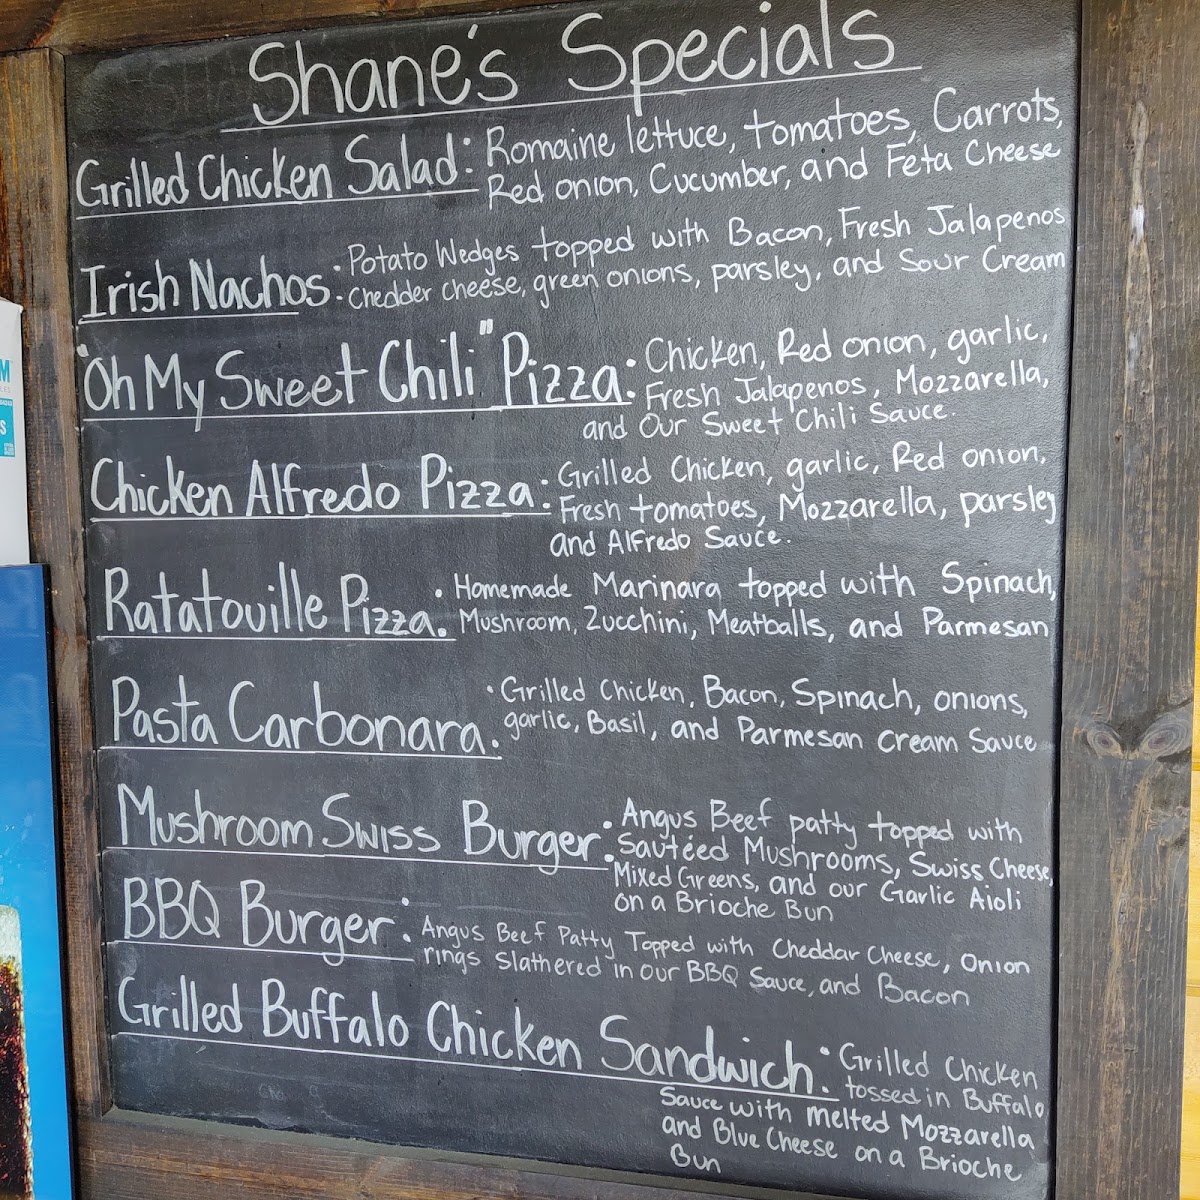 Shane's Specials
Grilled Chicken Salad: Romaine lettuce, tomatoes, Carrots,
Red onion, Cucumber, and Feta Cheese
Irish Nachos: Potato Wedges topped with Bacon, Fresh Jalapenos
Chedder cheese, green onions, parsley, and Sour Cream
"Oh My Sweet Chili" Pizza: Chicken, Red onion, garlic,
Fresh Jalapenos, Mozzarella,
and Our Sweet Chili Sauce.
Chicken Alfredo Pizza: Grilled Chicken, garlic, Red onion,
Fresh tomatoes, Mozzarella, parsley
and Alfredo Sauce.
Ratatouille Pizza: Homemade Marinara topped with Spinach,
Mushroom, Zucchini, Meatballs, and Parmesan
Pasta Carbonara: Grilled Chicken, Bacon, Spinach, onions,
garlic, Basil, and Parmesan Cream Sauce
Mushroom Swiss Burger: Angus Beef patty topped with
Sautéed Mushrooms, Swiss Cheese,
Mixed Greens, and our Garlic Aioli
on a Brioche Bun
BBQ Burger: Angus Beef Patty Topped with Cheddar Cheese, Onion
rings Slathered in our BBQ Sauce, and Bacon
Grilled Buffalo Chicken Sandwich: Grilled Chicken
tossed in Buffalo
Sauce with melted Mozzarella
and Blue Cheese on a Brioche
Bun
M
S